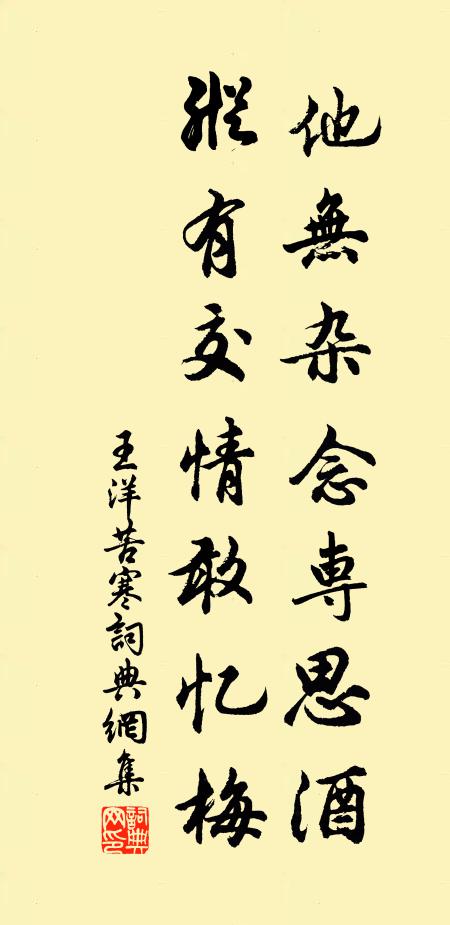 他無杂念専思酒
縱有交情敢忆梅
王洋苦寒詞典網集
詞典网印